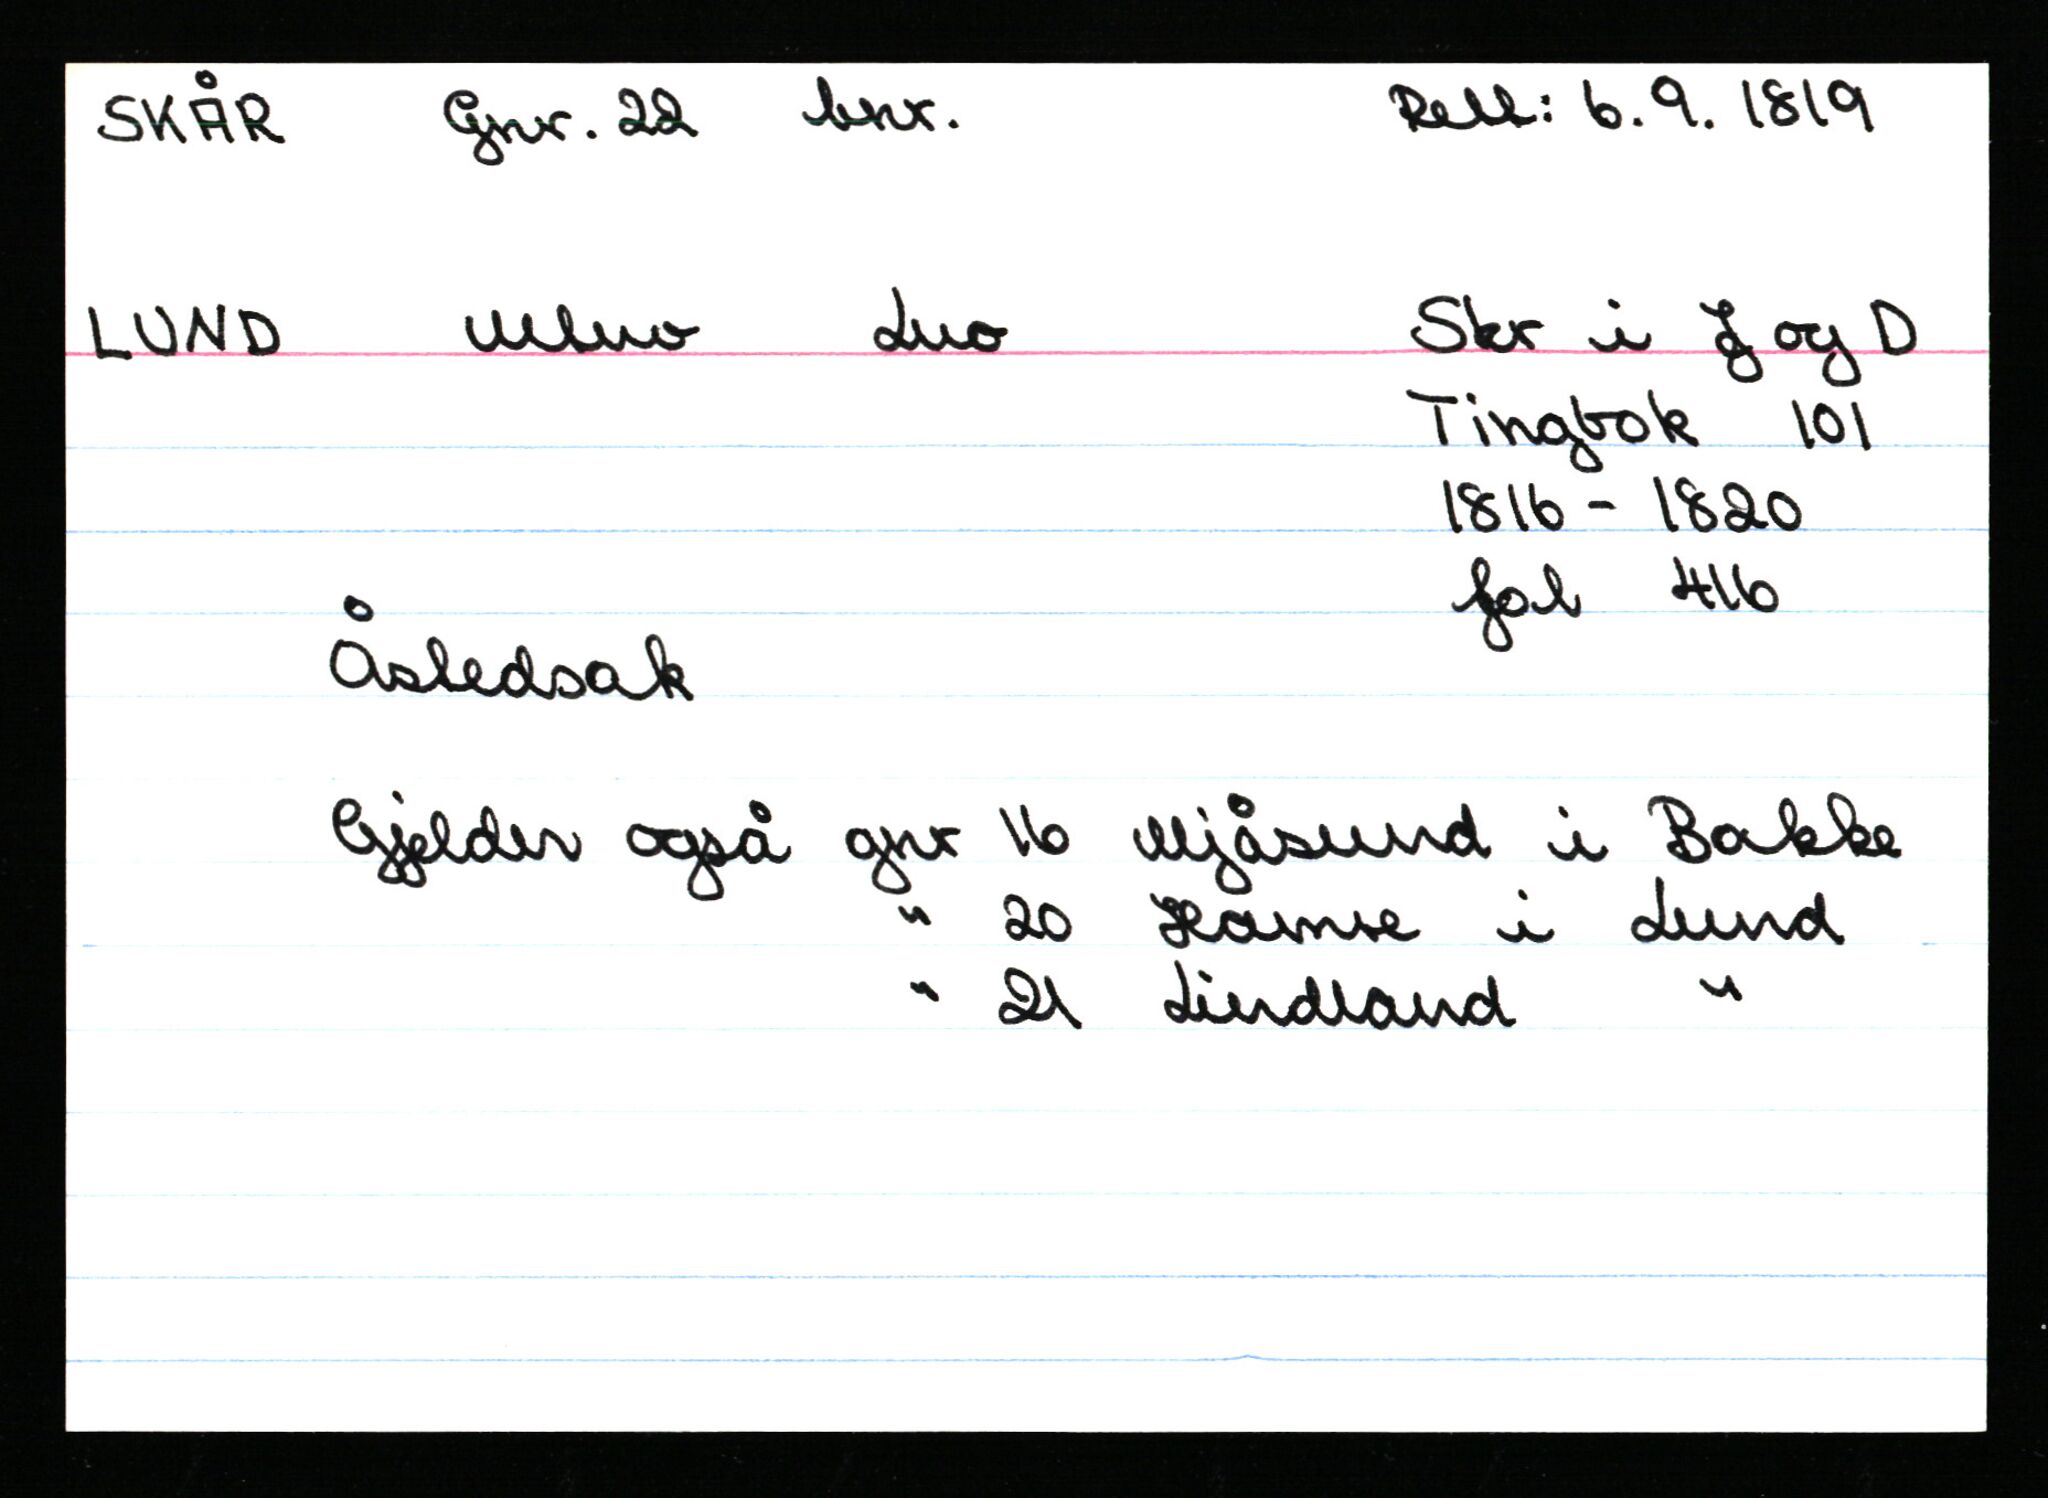 SKÅR Gnr. 22 bnr. Rett: 6.9.1819
LUND Muno Luo Skr i J og D
Tingbok 101
1816 - 1820
fol 416
Åstedsak
Gjelder også gnr 16 Mjåsund i Bakke
" 20 Hamre i Lund
" 21 Lindland "